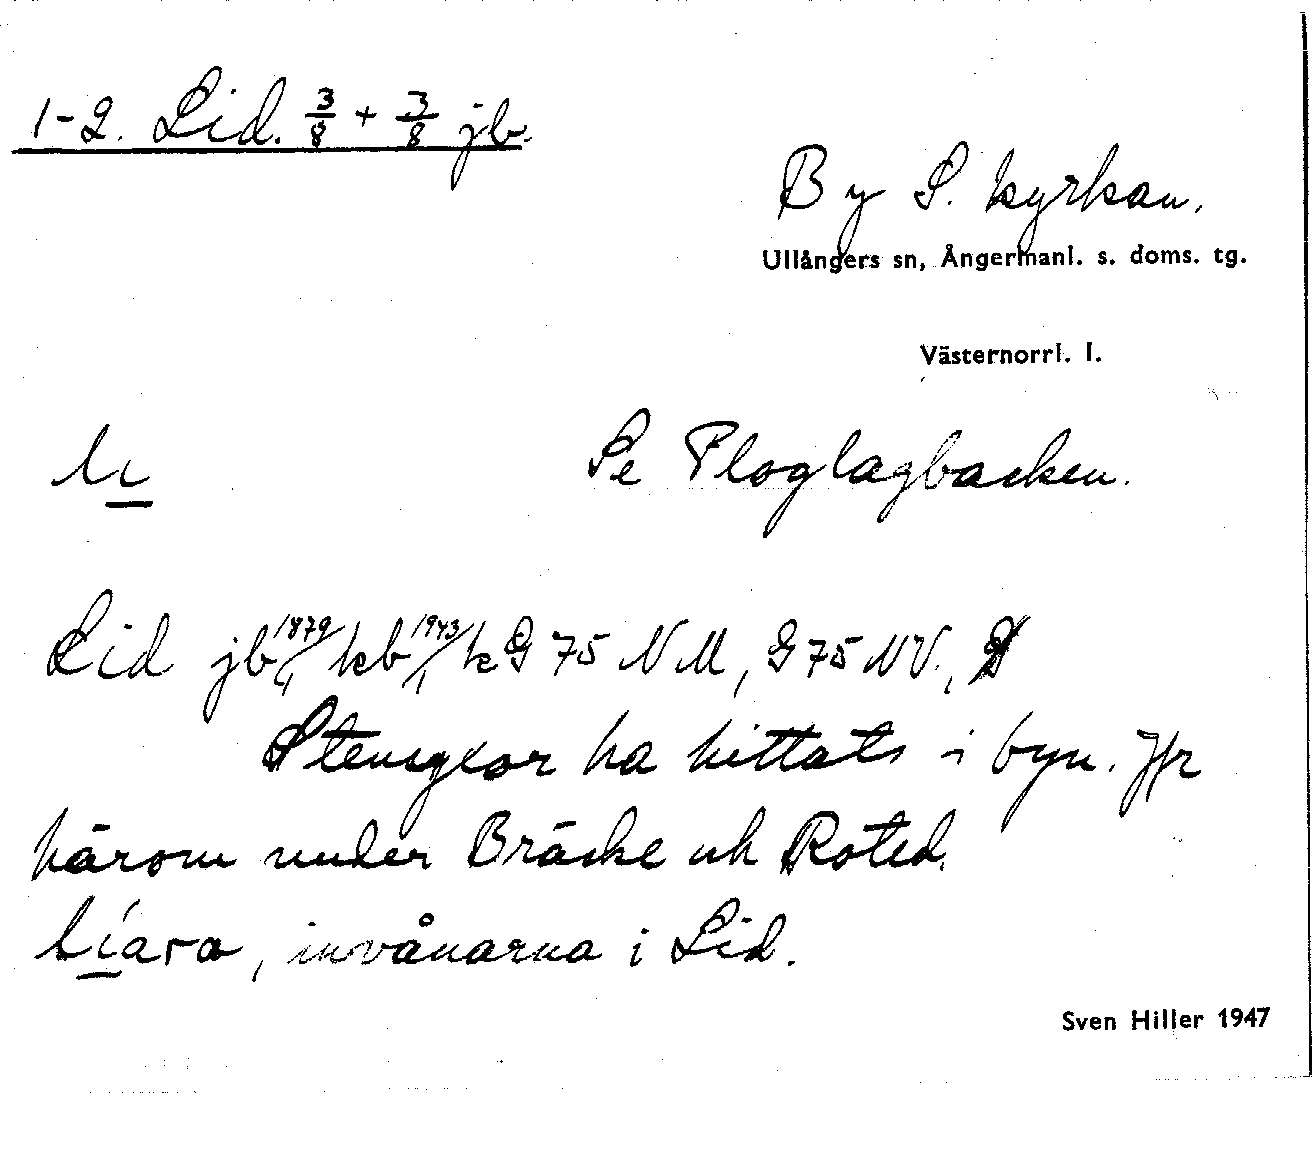 1-2. Lid. 3/8 + 3/8 jb.
By S. kyrkan.
Ullångers sn, Ångermanl. s. doms. tg.
Västernorrl. l.
li Se Ploglagbacken.
Lid jb 1879/1, kb 1943/1 k G 75 NM, G 75 NV.,
Stenyxor ha hittats i byn. Jfr
härom under Bräcke och Roted.
líara, invånarna i Lid.
Sven Hiller 1947